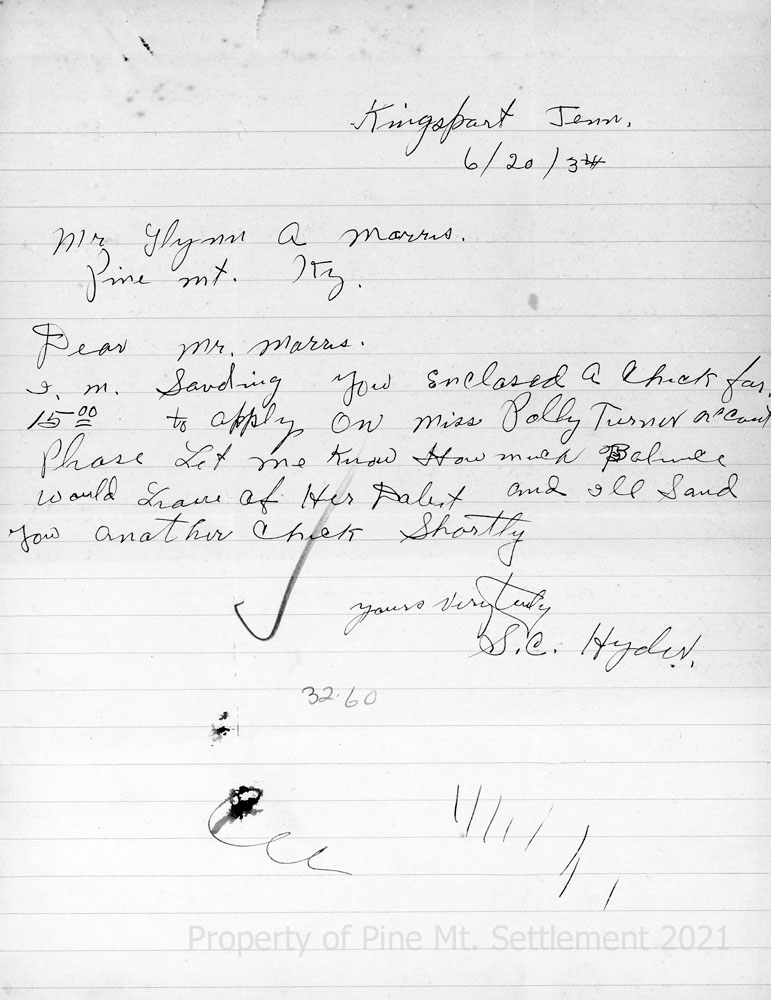 Kingsport Tenn.
6/20/34
Mr Glynn A Morris.
Pine mt. Ky.
Dear Mr. Morris.
I. m. Sanding you Enclosed A Check for
15 00 to apply On miss Polly Turner account
Phase Let me Know How much Balance
would Leave of Her Debt and Ill Sand
you another Check Shortly
yours very truly
S.C. Hyder.
32.60
Property of Pine Mt. Settlement 2021